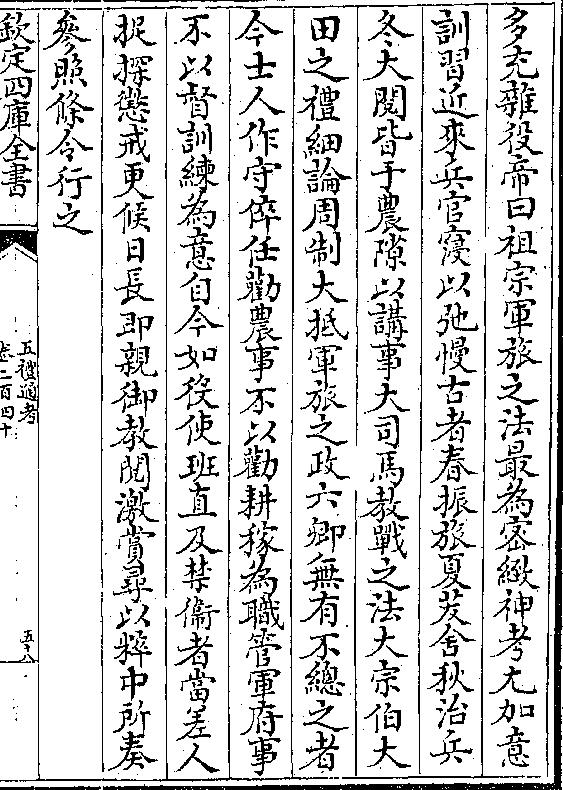 多充雜役帝曰祖宗軍旅之法最為密緻神考尤加意
訓習近來兵官寖以弛慢古者春振旅夏茇舍秋治兵
冬大閱皆于農隙以講事大司馬教戰之法大宗伯大
田之禮細論周制大抵軍旅之政六卿無有不總之者
今士人作守倅任勸農事不以勸耕稼為職管軍府事
不以督訓練為意自今如役使班直及禁衞者當差人
捉探懲戒更候日長即親御教閱激賞尋以粹中所奏
參照條令行之
欽定四庫全書
五禮通考
卷二百四十
五十八